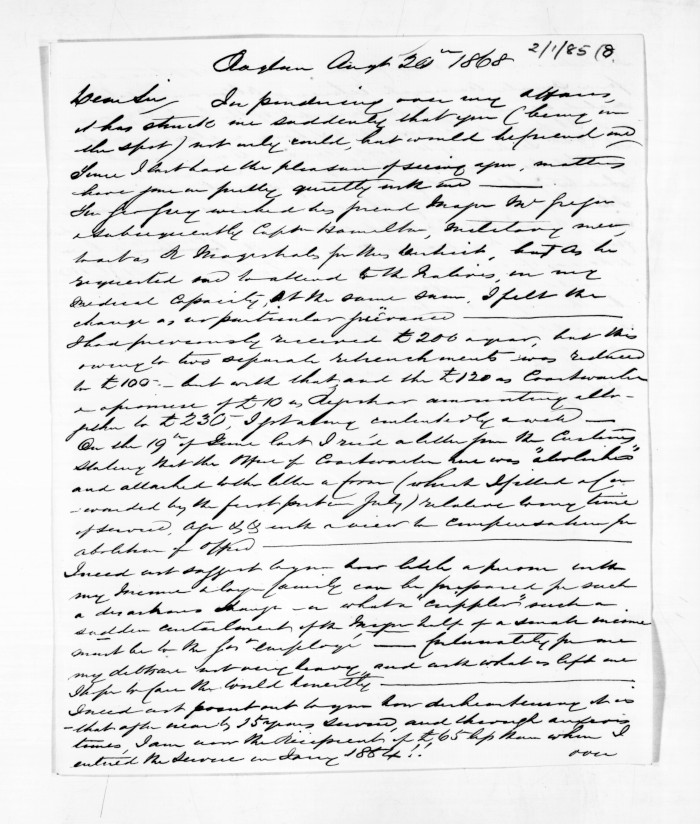 2/1/85 (8.
Raglan Augt 20th 1868
Dear Sir, In pondering over my affairs,
it has struck me suddenly that you (being on
the spot) not only could, but would befriend me
Since I last had the pleasure of seeing you, matters
have gone on pretty quietly with me —
Sir Geo Grey wished his friend Major McGregor
& subsequently Captn Hamilton, Military men,
to act as R Magistrates for this District, but as he
requested me to attend to the Natives, in my
medical capacity, at the same sum, I felt the
change as no particular grievance —
I had previously received £200 a year, but this
owing to two separate retrenchments was reduced
to £100 – but with that, and the £120 as Coastwaiter
& a promise of £10 as Registrar amounting alto-
gether to £230, I got along contentedly a while —
On the 19th of June last I rec'd a letter from the Customs
stating that the Office of Coastwaiter here was "abolished"
and attached to the letter a form (which I filled & for
-warded by the first post in July) relative to my time
of service, age &c &c with a view to compensation for
abolition of office —
I need not suggest to you how little a person with
my Income & large family can be prepared for such
a disastrous change – or what a "crippler" such a
sudden curtailment of the Major half of a small income
must be to the Govt employé — Fortunately for me
my debts are not very heavy, and with what is left me
I hope to face the World honestly —
I need not point out to you how disheartening it is
– that after nearly 15 years service, and through anxious
times, I am now the Recipient of £65 less than when I
entered the Service in Jany 1854!!
over